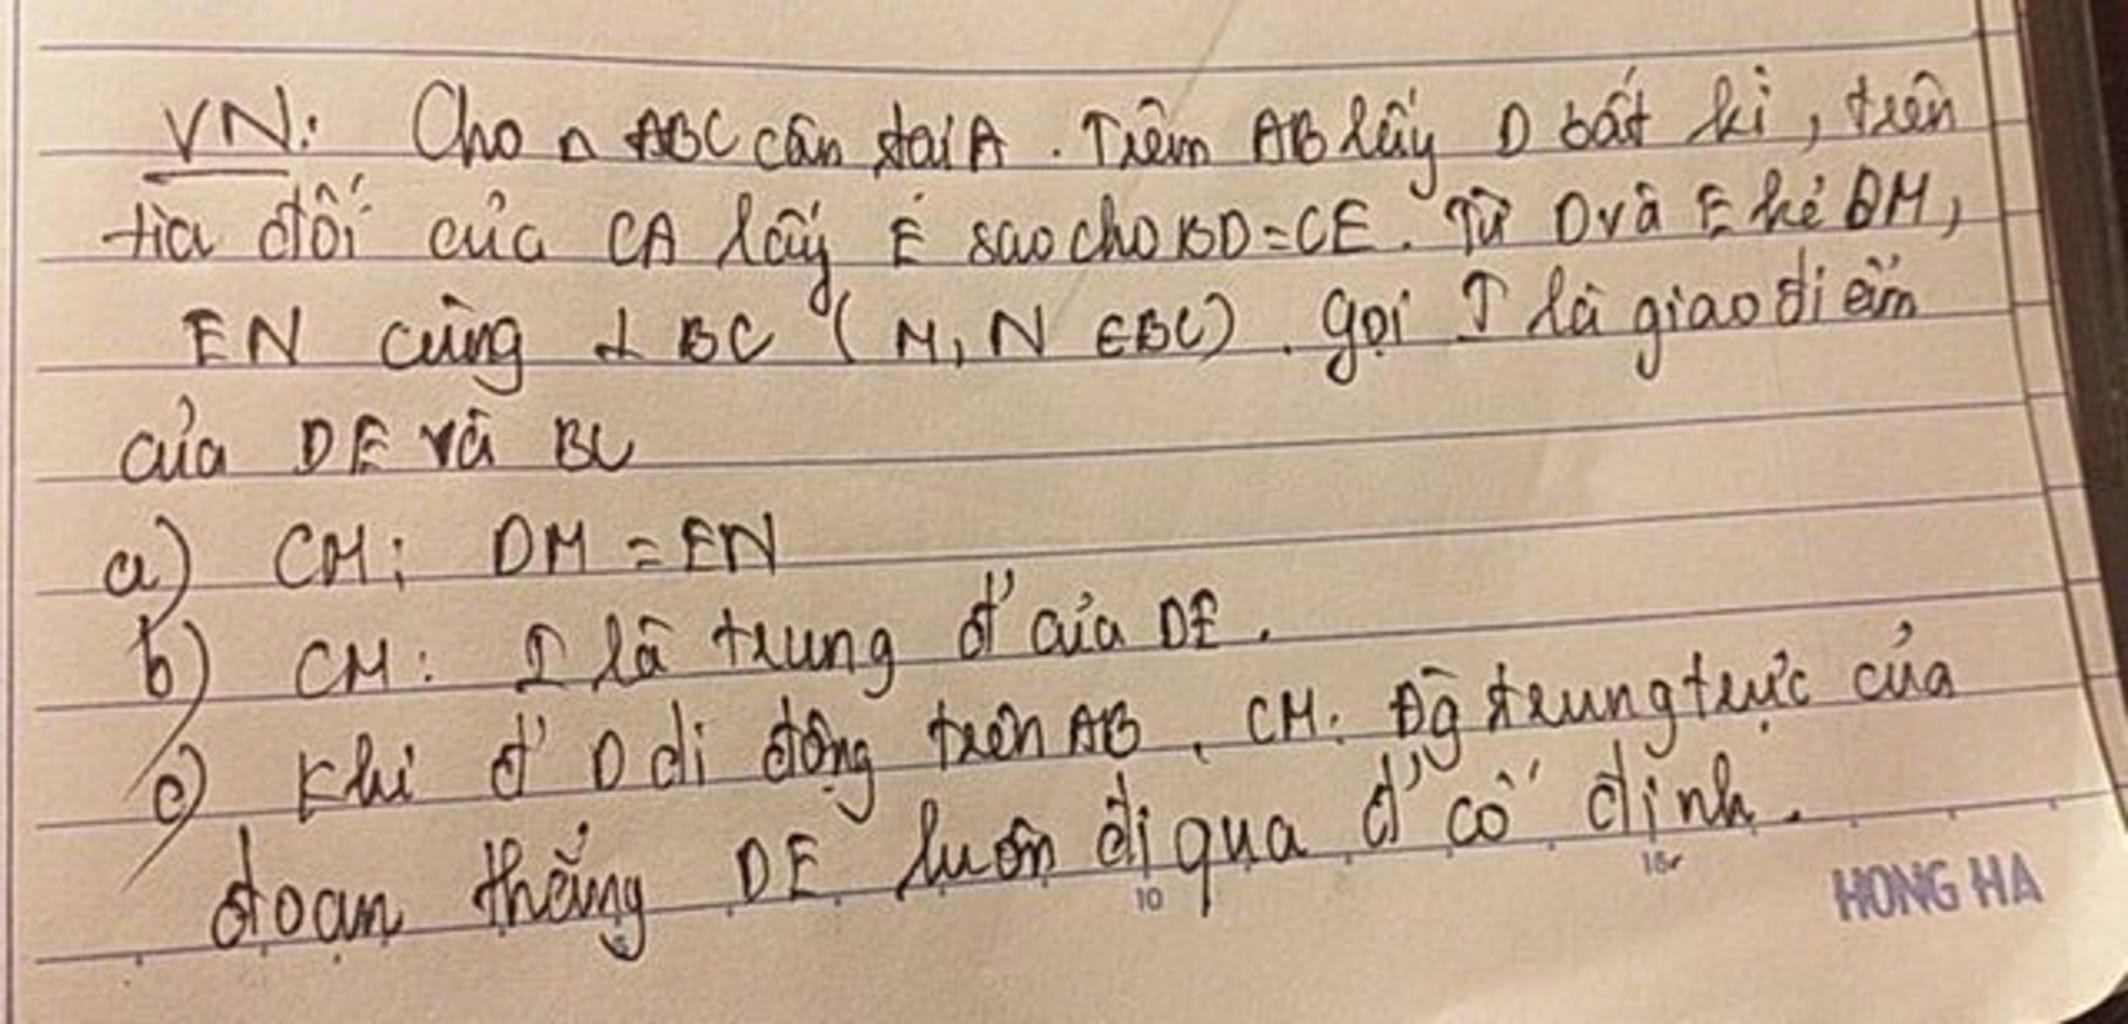 VN: Cho Δ ABC cân tại A. Trêm AB lấy D bất kì, trên
tia đối của CA lấy E sao cho BD=CE. Từ D và E kẻ DM,
EN cùng ⊥ BC (M, N ∈ BC). Gọi I là giao điểm
của DE và BC
a) CM: DM = EN
b) CM: I là trung đ' của DE.
c) Khi đ' D di động trên AB, CM: Đg trung trực của
đoạn thẳng DE luôn đi qua đ' cố định.
10
HONG HA